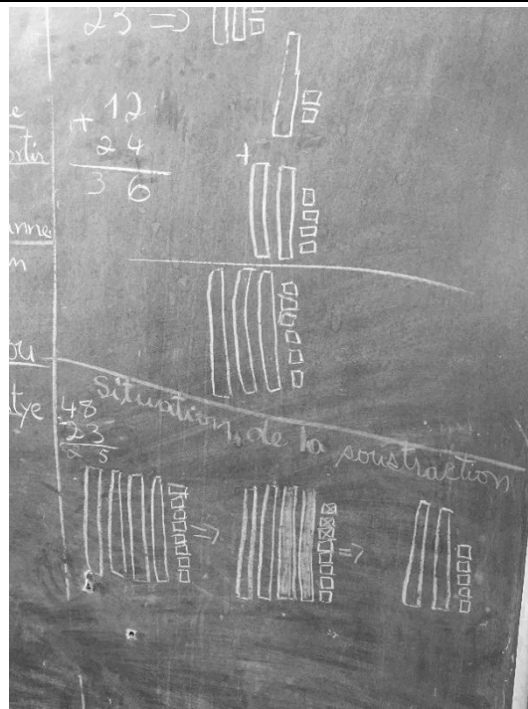 23 ⇒
+ 12
24
36
+
Situation de la soustraction
48
23
25
⇒ ⇒